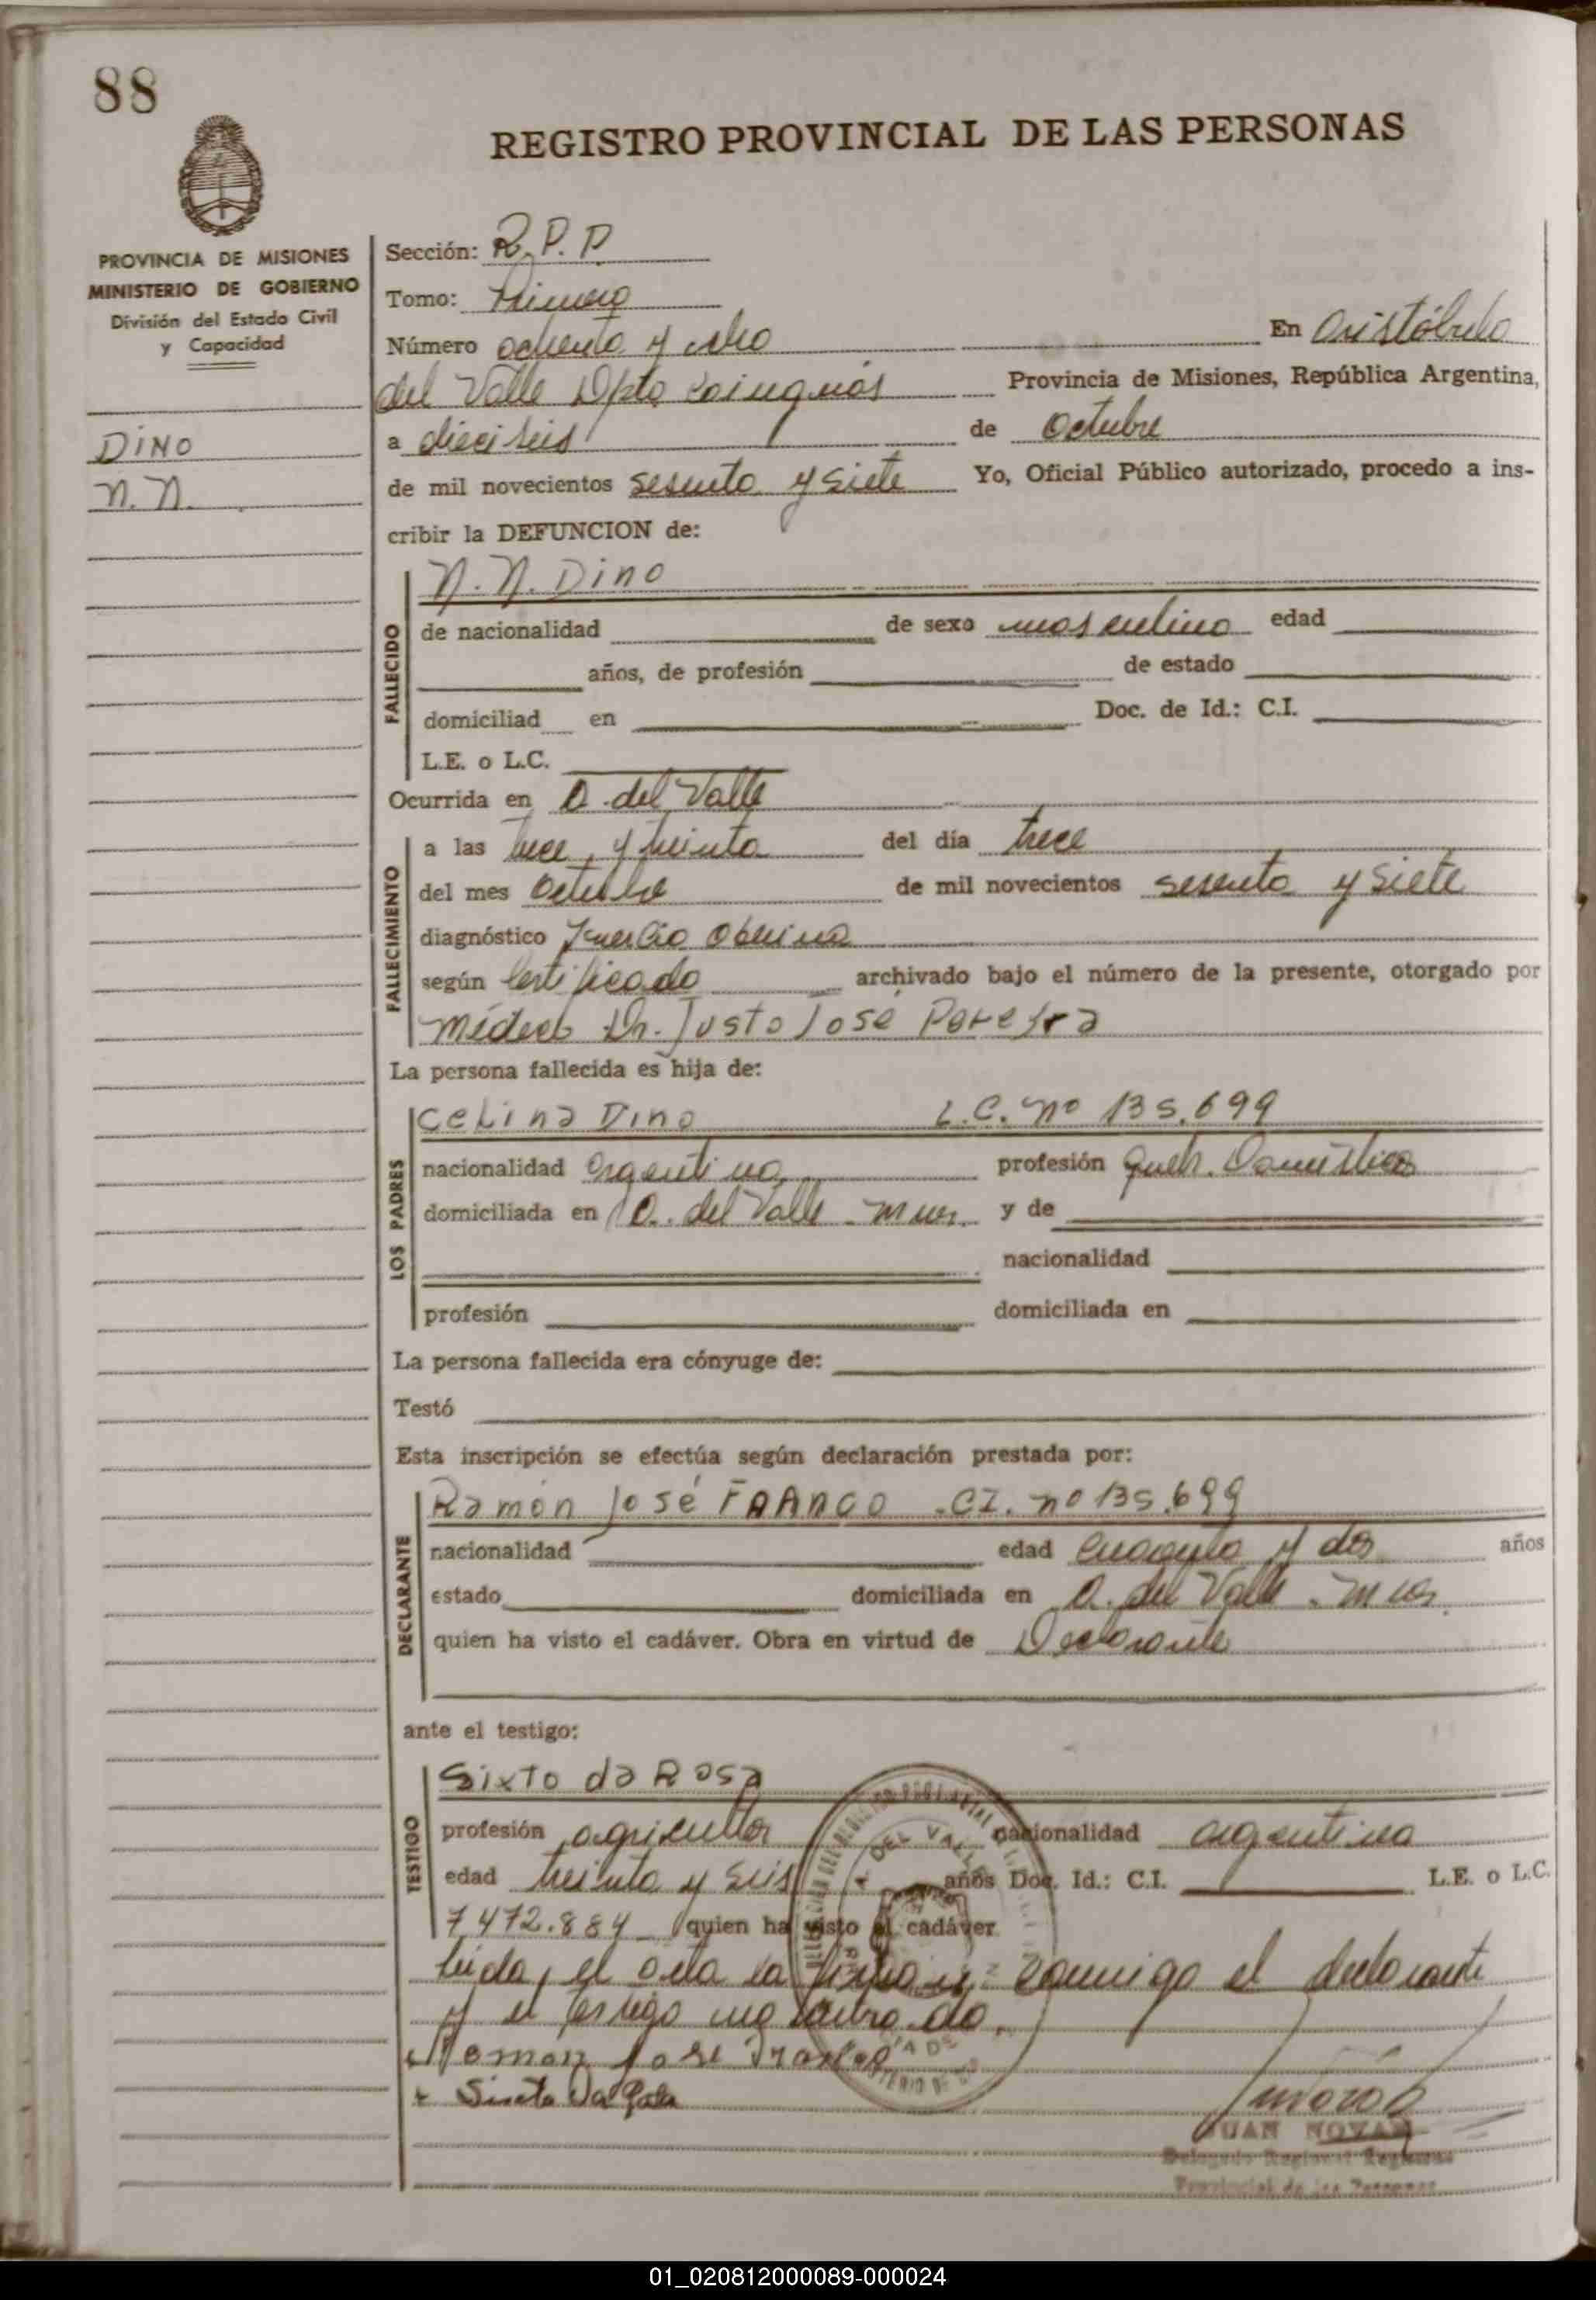 88
REGISTRO PROVINCIAL DE LAS PERSONAS
PROVINCIA DE MISIONES
MINISTERIO DE GOBIERNO
División del Estado Civil
y Capacidad
DINO
N.N.
Sección: R.P.P.
Tomo: Primero
Número ochenta y ocho En Aristóbulo
del Valle Dpto Cainguás Provincia de Misiones, República Argentina,
a dieciseis de Octubre
de mil novecientos sesenta y siete Yo, Oficial Público autorizado, procedo a ins-
cribir la DEFUNCION de:
FALLECIDO
N.N. Dino
de nacionalidad de sexo masculino edad
años, de profesión de estado
domiciliad en Doc. de Id.: C.I.
L.E. o L.C.
Ocurrida en A. del Valle
FALLECIMIENTO
a las trece y treinta del día trece
del mes Octubre de mil novecientos sesenta y siete
diagnóstico
según Certificado archivado bajo el número de la presente, otorgado por
Médico Dr. Justo José Pereyra
La persona fallecida es hija de:
LOS PADRES
Celina Dino L.C. nº 135.699
nacionalidad argentina profesión Queh. Domésticos
domiciliada en A. del Valle - Mnes. y de
nacionalidad
profesión domiciliada en
La persona fallecida era cónyuge de:
Testó
Esta inscripción se efectúa según declaración prestada por:
DECLARANTE
Ramón José FRANCO - CI. nº 135.699
nacionalidad edad cuarenta y dos años
estado domiciliada en A. del Valle - Mnes.
quien ha visto el cadáver. Obra en virtud de Declarante
ante el testigo:
TESTIGO
Sixto da Rosa
profesión agricultor nacionalidad argentina
edad treinta y seis años Doc. Id.: C.I. L.E. o L.C.
7.472.884 quien ha visto el cadáver
leida, el acta la firman conmigo el declarante
y el testigo
Ramon Jose Franco
JUAN NOVAK
Delegado Regional Registro
Provincial de las Personas
01_020812000089-000024